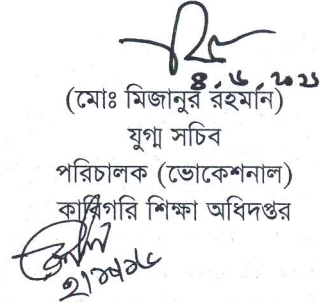 ৪.৬.২০২১
(মোঃ মিজানুর রহমান)
যুগ্ম সচিব
পরিচালক (ভোকেশনাল)
কারিগরি শিক্ষা অধিদপ্তর